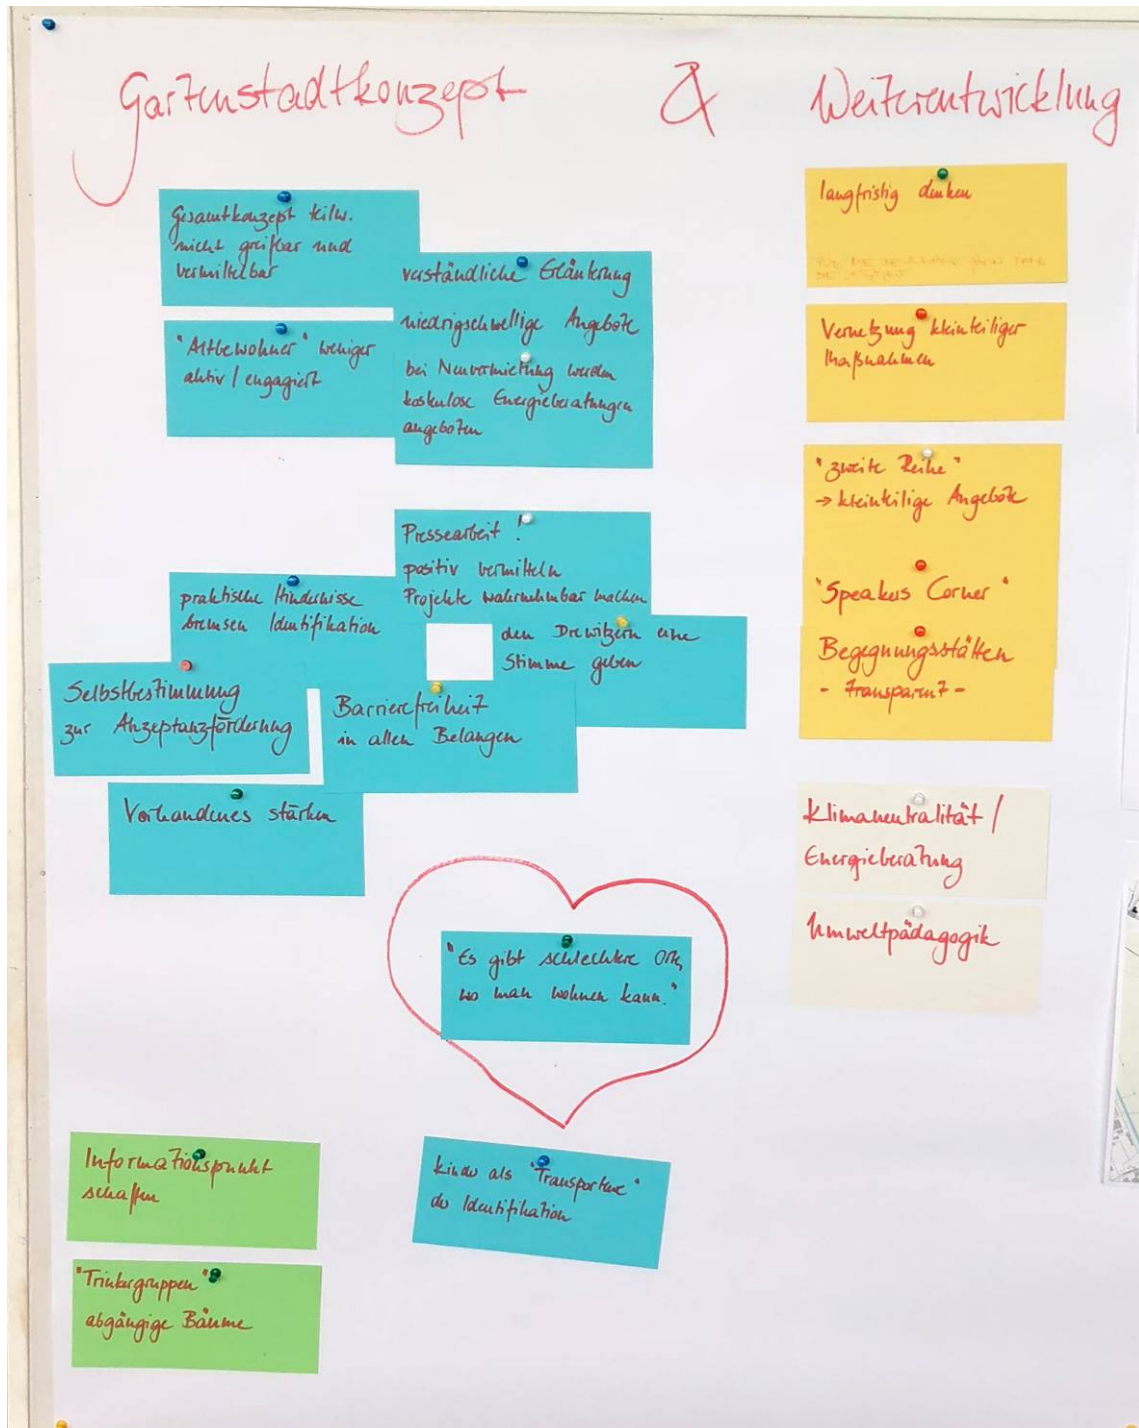 Gartenstadtkonzept & Weiterentwicklung
Gesamtkonzept teilw.
nicht greifbar und
vermittelbar
"Altbewohner" weniger
aktiv / engagiert
verständliche Erläuterung
niedrigschwellige Angebote
bei Neuvermietung werden
kostenlose Energieberatungen
angeboten
Pressearbeit !
positiv vermitteln
Projekte wahrnehmbar machen
praktische Hindernisse
bremsen Identifikation
den Drewitzern eine
Stimme geben
Selbstbestimmung
zur Akzeptanzförderung
Barrierefreiheit
in allen Belangen
Vorhandenes stärken
"Es gibt schlechtere Orte,
wo man wohnen kann."
Kinder als "Transporteure"
der Identifikation
Informationspunkt
schaffen
"Trinkergruppen"
abgängige Bäume
langfristig denken
Vernetzung kleinteiliger
Maßnahmen
"zweite Reihe"
→ kleinteilige Angebote
"Speakers Corner"
Begegnungsstätten
- transparent -
Klimaneutralität /
Energieberatung
Umweltpädagogik